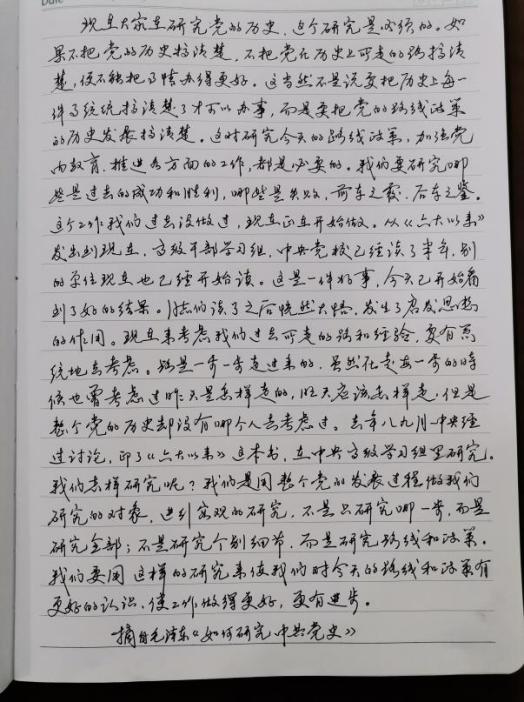 Date
现在大家在研究党的历史，这个研究是必须的。如
果不把党的历史搞清楚，不把党在历史上所走的路搞清
楚，便不能把事情办得更好。这当然不是说要把历史上每一
件事统统搞清楚了才可以办事，而是要把党的路线政策
的历史发展搞清楚。这对研究今天的路线政策，加强党
内教育，推进各方面的工作，都是必要的。我们要研究哪
些是过去的成功和胜利，哪些是失败，前车之覆，后车之鉴。
这个工作我们过去没做过，现在正在开始做。从《六大以来》
发出到现在，高级干部学习组，中央党校已经读了半年，别
的单位现在也已经开始读。这是一件好事，今天已开始看
到了好的结果。同志们读了之后恍然大悟，发生了启发思想
的作用。现在来考虑我们过去所走的路和经验，要有系
统地去考虑。路是一步一步走过来的，虽然在走每一步的时
候也曾考虑过昨天是怎样走的，明天应该怎样走，但是
整个党的历史却没有哪个人去考虑过。去年八九月中央经
过讨论，印了《六大以来》这本书，在中央高级学习组里研究。
我们怎样研究呢？我们是用整个党的发展过程做我们
研究的对象，进行客观的研究，不是只研究哪一步，而是
研究全部；不是研究个别细节，而是研究路线和政策。
我们要用这样的研究来使我们对今天的路线和政策有
更好的认识，使工作做得更好，更有进步。
摘自毛泽东《如何研究中共党史》